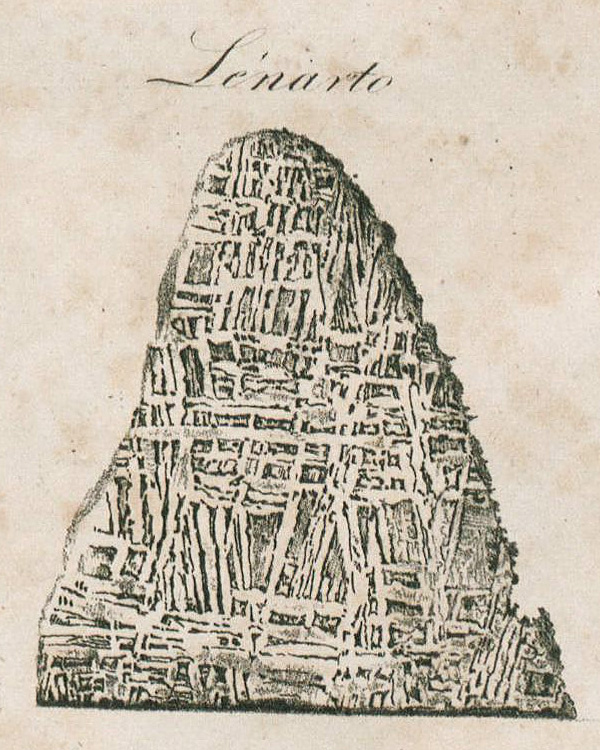 Lénarto